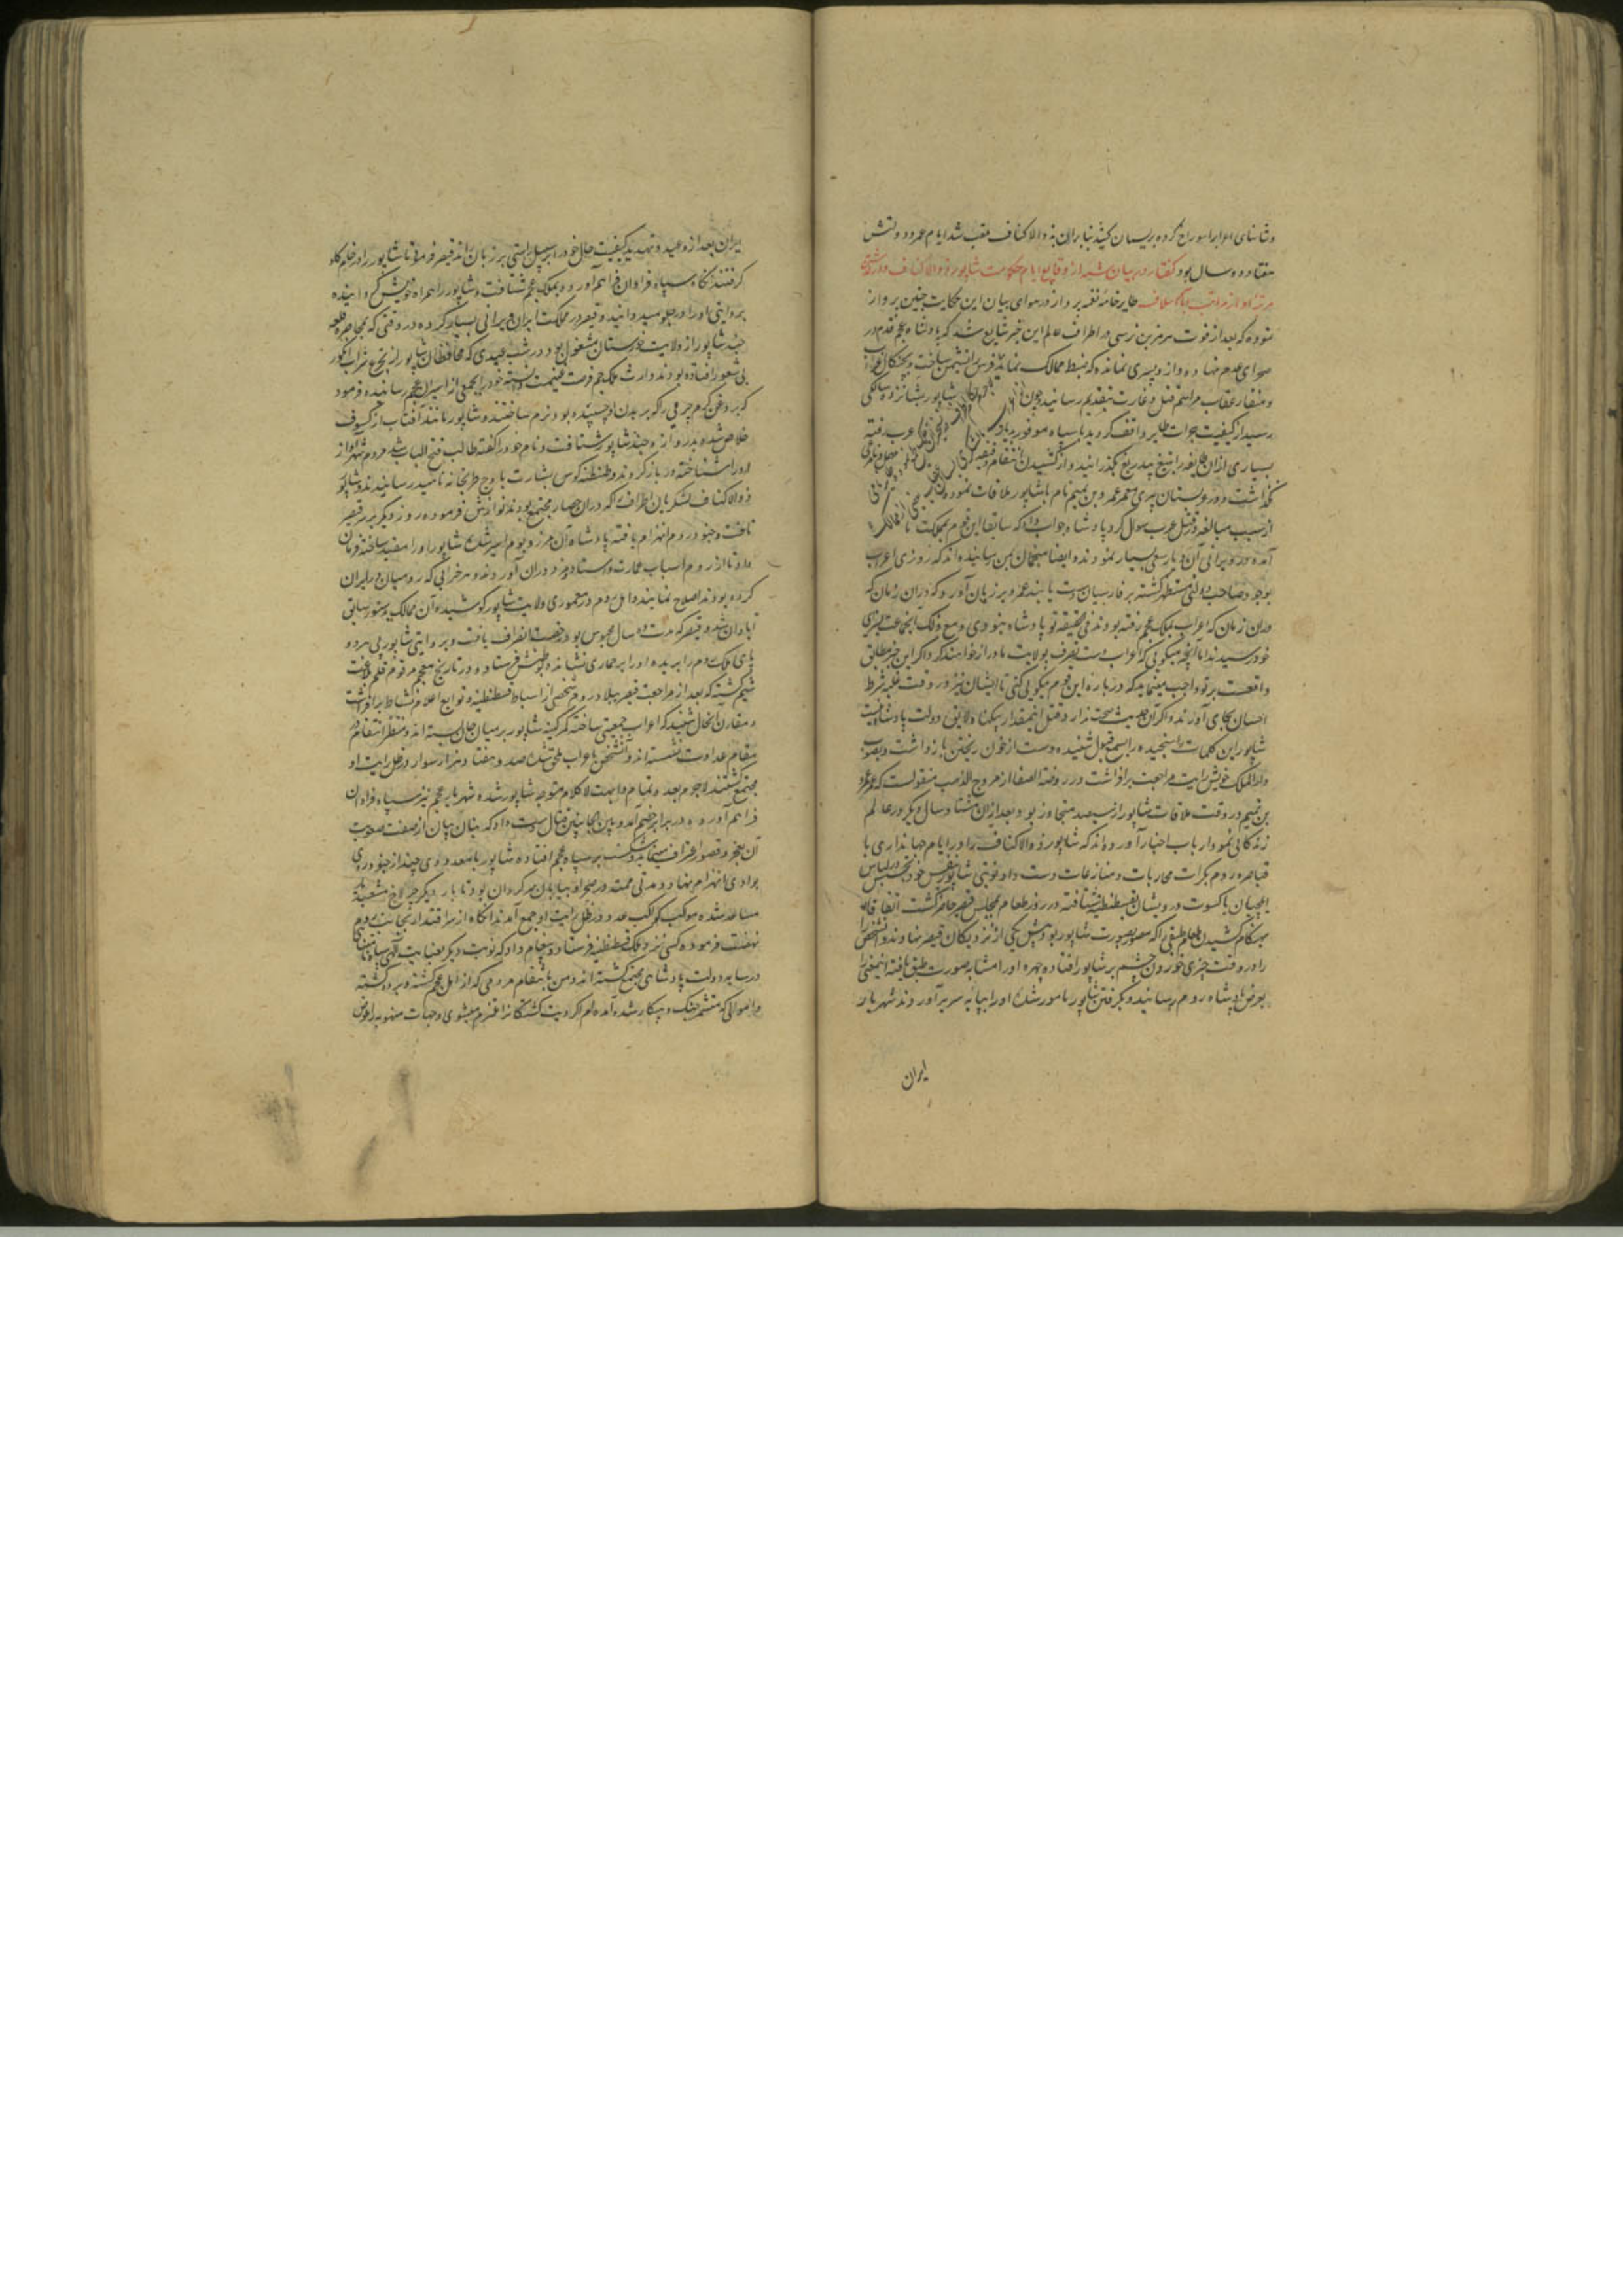 وشانهای اعراب سوراخ کرده ریسمان کشید بنابران به ذوالاکتاف ملقب شد ایام عمر و دولتش
هفتاد و دو سال بود گفتار در بیان شمه از وقایع ایام حکومت شاپور ذوالاکتاف
مرتبه او از مراتب اسلاف طایر خامه نغمه پرداز در هوای بیان این حکایت چنین پرواز
نموده که بعد از فوت هرمز بن نرسی در اطراف عالم این خبر شایع شد که پادشاه عجم قدم در
صحرای عدم نهاده و از و پسری نمانده که ضبط ممالک نماید
و منقار عقاب مراسم قتل و غارت بتقدیم رسانید چون شاپور بشانزده سالگی
رسید از کیفیت جرات واقف گردید با سپاه موفور عرب رفته
بسیاری از ان طایفه را بتیغ بیدریغ بگذرانید و از کشیدن انتقام
نگذاشت و در عربستان پیری معمر عمرو بن تمیم نام با شاپور ملاقات نموده
از سبب مبالغه در قتل عرب سوال کرد پادشاه جواب داد که سابقا این قوم بمملکت ما
آمده در ویرانی آن دیار سعی بسیار نمودند و ایضا منجمان بمن رسانیده اند که روزی اعراب
بوجود صاحب دولتی مستظهر گشته بر فارسیان دست یابند عمرو بر زبان آورد که دران زمان که
دران زمان که اعراب بملک عجم رفته بودند فی الحقیقه تو پادشاه نبودی و مع ذلک انجماعت بجزای
خود رسیدند اما آنچه میگوئی که اعراب دست تصرف بولایت ما دراز خواهند کرد اگر این خبر مطابق
واقعست بر تو واجب مینماید که درباره این قوم نیکویی کنی تا ایشان نیز در وقت غلبه شرط
احسان بجای آورند و اگر آن حدیث صحت ندارد قتل اینمقدار بیگناه لایق دولت پادشاه نیست
شاپور این کلمات سنجیده را بسمع قبول شنیده دست از خون ریختن بازداشت و بصوب
دارالملک خویش رایت مراجعت برافراشت در روضة الصفا از مروج الذهب منقولست که عمرو
بن تمیم در وقت ملاقات شاپور از سیصد متجاوز بود و بعد ازان هشتاد سال دیگر در عالم
زندگانی نمود ارباب اخبار آورده اند که شاپور ذوالاکتاف را در ایام جهانداری با
قیاصره روم بکرات محاربات و منازعات دست داد و نوبتی شاپور بنفس خود بتجسس در لباس
ایلچیان با کسوت درویشان بقسطنطنیه شتافته در روز طعام بمجلس قیصر حاضر گشت اتفاقا
هنگام کشیدن طعام طبقی را که مصور بصورت شاپور بود پیش یکی از نزدیکان قیصر نهادند و آنشخص
را در وقت چیزی خوردن چشم بر شاپور افتاده چهره او را مشابه صورت طبق یافته اینمعنی را
بعرض پادشاه روم رسانید و بگرفتن شاپور مامور شده او را بپایه سریر آوردند شهریار
ایران
ایران بعد از وعید و تهدید کیفیت حال خود را بر سبیل راستی بر زبان راند قیصر فرمود تا شاپور را در خام گاو
گرفتند آنگاه سپاه فراوان فراهم آورده بملک عجم شتافت و شاپور را همراه خویش گردانیده
بروایتی او را در جلو میدوانید و قیصر در مملکت ایران ویرانی بسیار کرده در وقتی که بمحاصره قلعه
جندشاپور از ولایت خوزستان مشغول بود در شب عیدی که محافظان شاپور از تجرع شراب انگور
بی شعور افتاده بودند وارث ملک عجم فرصت غنیمت دانسته خود را بجمعی از اسیران عجم رسانیده فرمود
که بروغن گرم چرمی را که بر بدن او چسپیده بود نرم ساختند و شاپور مانند آفتاب از کسوف
خلاص شده بدروازه جندشاپور شتافت و نام خود را گفته طالب فتح الباب شد مردم شهر آواز
او را شناخته در باز کردند و طنطنه کوس بشارت باوج طربخانه ناهید رسانیدند و شاپور
ذوالاکتاف لشکریان اطراف را که دران حصار مجتمع بودند نوازش فرموده روز دیگر بر سر قیصر
تاخت و جنود روم انهزام یافته پادشاه آن مرز و بوم اسیر شد شاپور او را مقید ساخته فرمان
داد تا از روم اسباب عمارت و استاد و مزدوران آورده و هر خرابی که رومیان در ایران
کرده بودند اصلاح نمایند و اهل روم در معموری ولایت شاپور کوشیده آن ممالک بدستور سابق
آبادان شد و قیصر که مدت ده سال محبوس بود رخصت انصراف یافت و بروایتی شاپور پی هر دو
پای ملک روم را بریده او را بر حماری نشانده بوطنش فرستاد و در تاریخ معجم مرقوم قلم
گشته که بعد از مراجعت قیصر ببلاد روم شخصی از اسباط قسطنطنیه و توابع اعلام نشاط برافراشت
و مقارن انحال شنید که اعراب جمعیتی ساخته کمر کینه شاپور بر میان جان بسته اند و منتظر انتقام در
مقام عداوت نشسته اند و آنشخص با عراب ملحق شد و صد و هفتاد هزار سوار در ظل رایت او
مجتمع گشتند لاجرم بعد متوجه شاپور شده شهریار عجم نیز سپاه فراوان
فراهم آورده در برابر خصم آمد و بین الجانبین قتالی دست داد که بنان بیان از صفت صعوبت
آن بعجز و قصور اعتراف مینماید و شکست بر سپاه عجم افتاده شاپور با معدودی چند از جنود روی
بوادی انهزام نهاد و مدتی ممتد در صحرا و بیابان سرگردان بود تا بار دیگر
مساعد شده موکب کواکب عدد در ظل رایت او جمع آمدند آنگاه از سر اقتدار بجانب روم
نهضت فرموده کسی نزد ملک قسطنطنیه فرستاد و پیغام داد که نوبت دیگر بعنایت الهی سپاه
در سایه دولت پادشاهی مجتمع گشته اند و من بانتقام مردمی که از اهل عجم کشته و برده گشته
و اموالی که جنگ و پیکار شده آمده ام اگر دیت کشتگان را ملتزم میشوی و جهات منهوبه را عوض